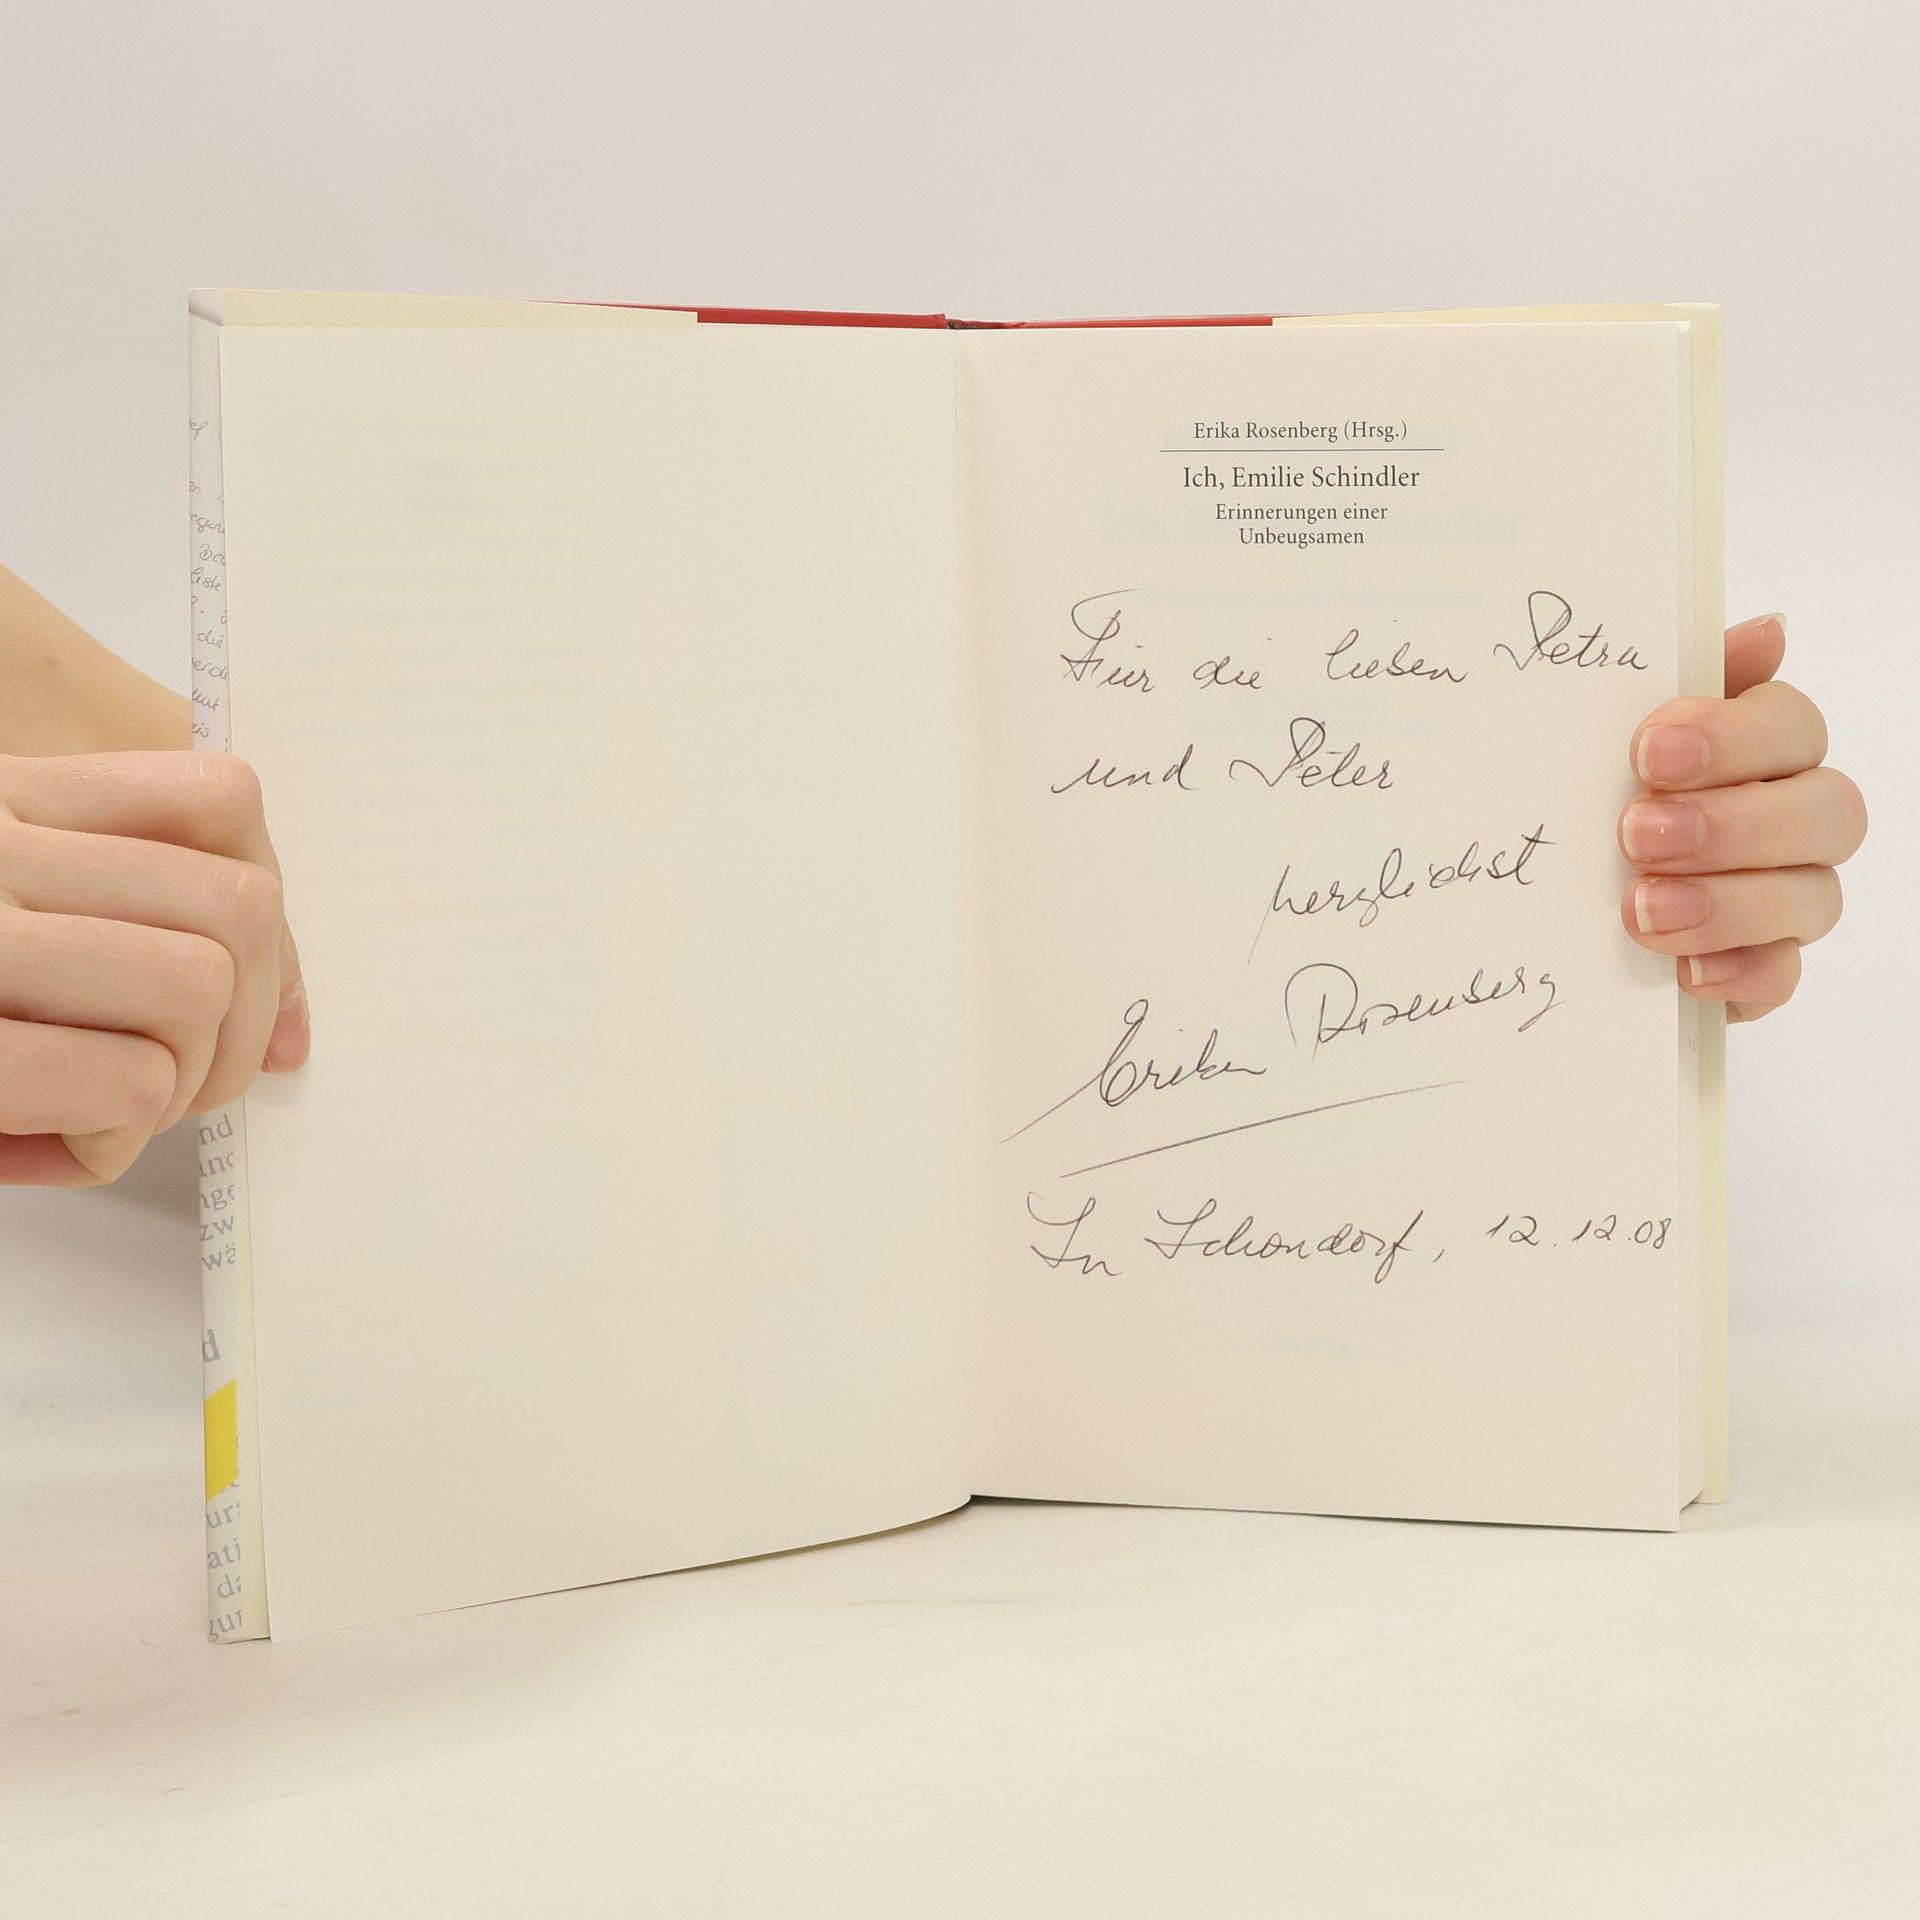 Erika Rosenberg (Hrsg.)
Ich, Emilie Schindler
Erinnerungen einer
Unbeugsamen
Für die lieben Petra
und Peter
herzlichst
Erika Rosenberg
In Schondorf, 12.12.08